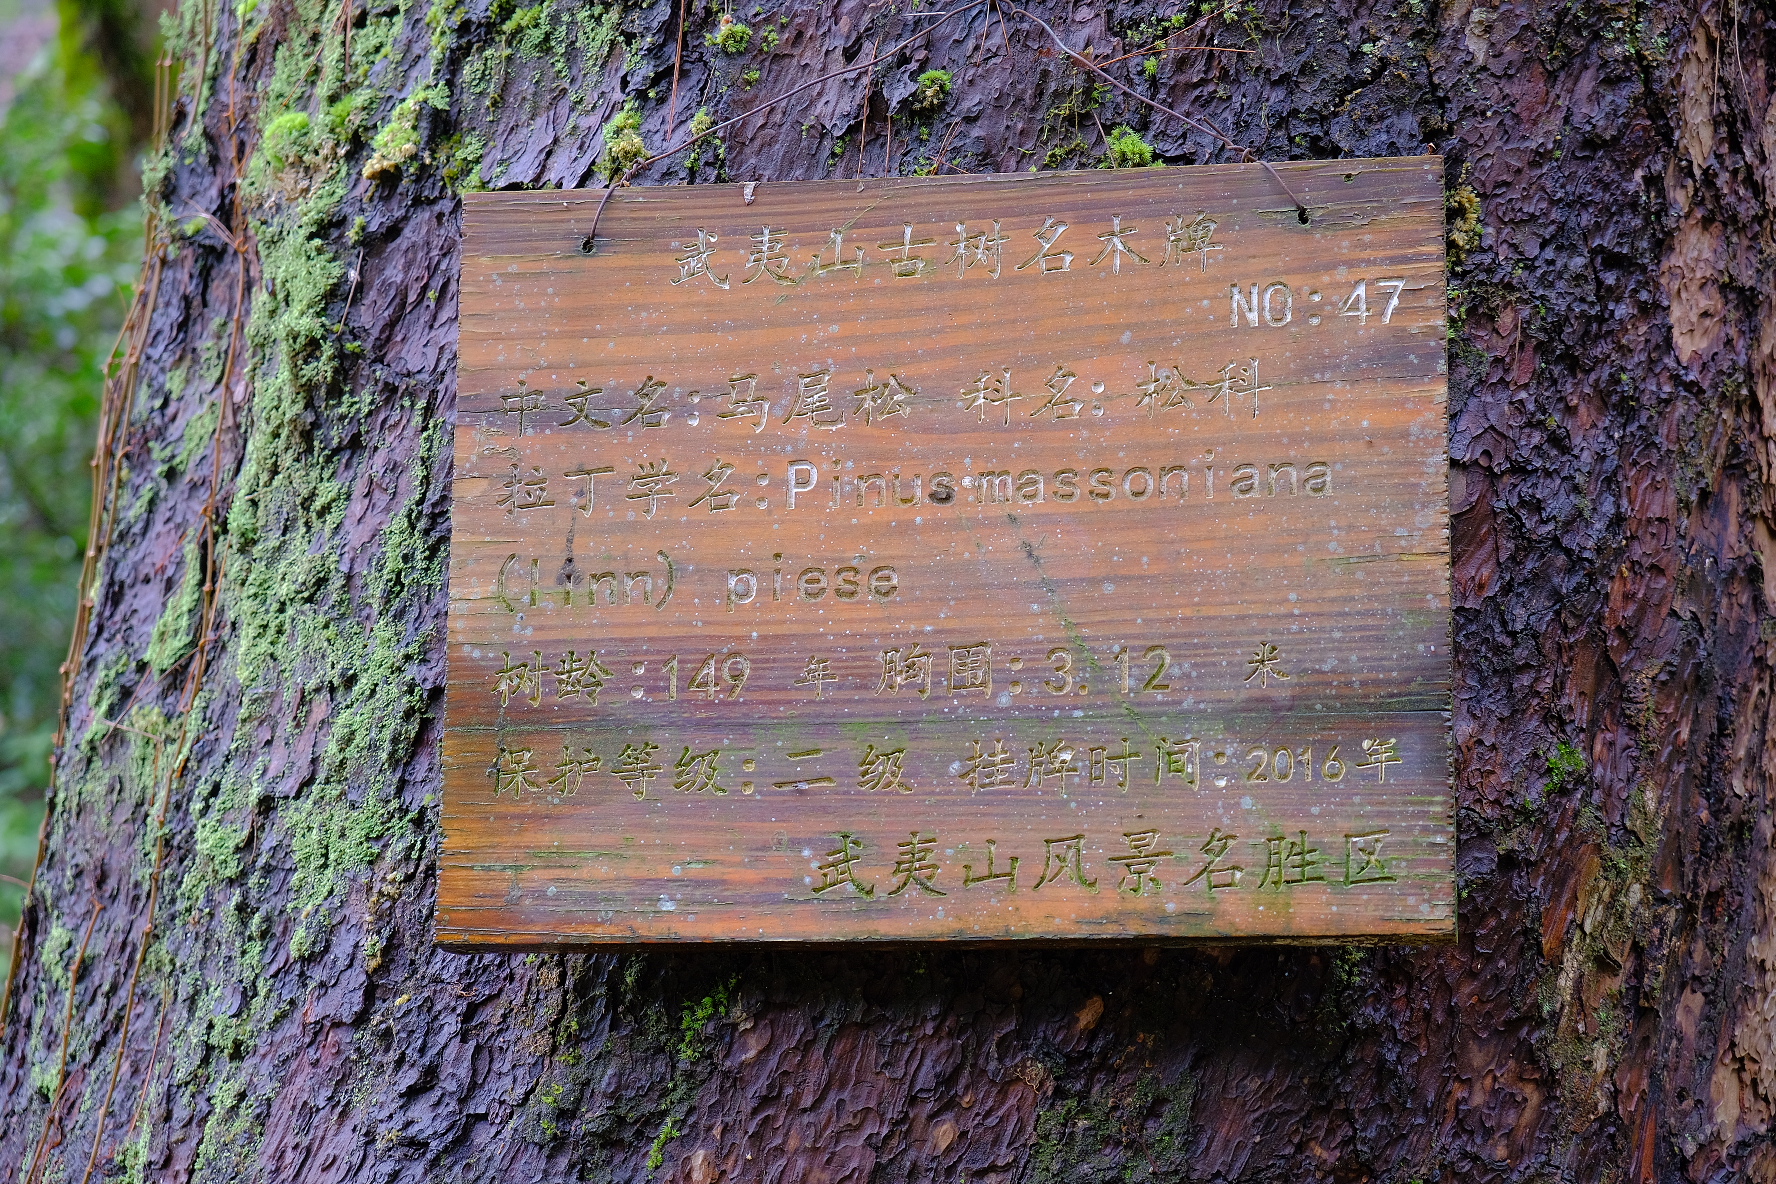 武夷山古树名木牌
NO:47
中文名:马尾松 科名:松科
拉丁学名:Pinus massoniana
(linn) piese
树龄:149 年 胸围:3.12 米
保护等级:二级 挂牌时间:2016年
武夷山风景名胜区